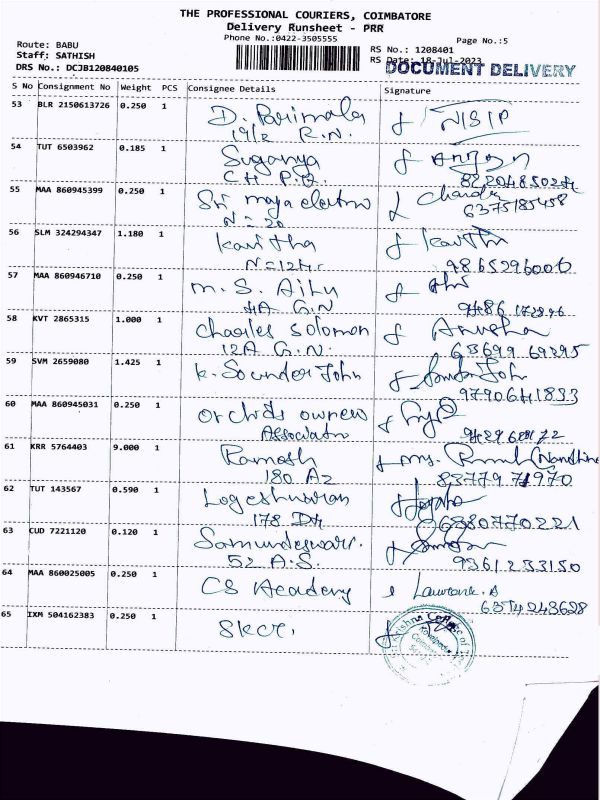 THE PROFESSIONAL COURIERS, COIMBATORE
Delivery Runsheet - PRR
Phone No.:0422-3505555
Page No.:5
Route: BABU
Staff: SATHISH
DRS No.: DCJB120840105
RS No.: 1208401
RS Date: 18-Jul-2023
DOCUMENT DELIVERY
S No Consignment No Weight PCS Consignee Details Signature
53 BLR 2150613726 0.250 1 D. Parimala
19/2 R.N.
54 TUT 6503962 0.185 1 Suganya
55 MAA 860945399 0.250 1 Sri maya electro
N = 20
6375185458
56 SLM 324294347 1.180 1 Kavitha Kavitha
9865296006
57 MAA 860946710 0.250 1 M. S.
4A G.N
58 KVT 2865315 1.000 1 Charles Solomon Anusha
12A G.N. 63699 69295
59 SVM 2659080 1.425 1 K. Sounder John
9790641833
60 MAA 860945031 0.250 1 Orchids owners
Association
61 KRR 5764403 9.000 1 Ramesh
180 A2 83779 71970
62 TUT 143567 0.590 1 Logeshwaran
178 6880770221
63 CUD 7221120 0.120 1 Samundeswari.
52 A.S. 9361233150
64 MAA 860025005 0.250 1 CS Academy Lawrance. A
6374243628
65 IXM 504162383 0.250 1 SKCT.